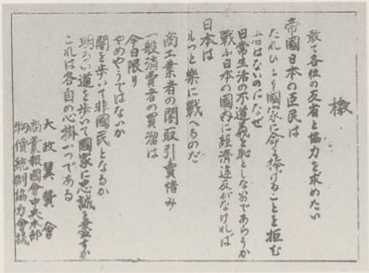 檄
敢て各位の反省と協力を求めたい
帝國日本の臣民は
たれひとり國家に命を捧げることを拒む
ものはないのになぜ
日常生活の不道義を恥としなおであらうか
戰ふ日本の國内に經濟違反がなければ
日本は
もつと樂に戰へるのだ
商工業者の闇取引賣惜み
一般消費者の買溜は
今日限り
やめやうではないか
闇を歩いて非國民となるか
明るい道を歩いて國家に忠誠を盡すか
これは各自の心掛一つである
大政翼賛會
商業報國會中央本部
物價統制協力會議